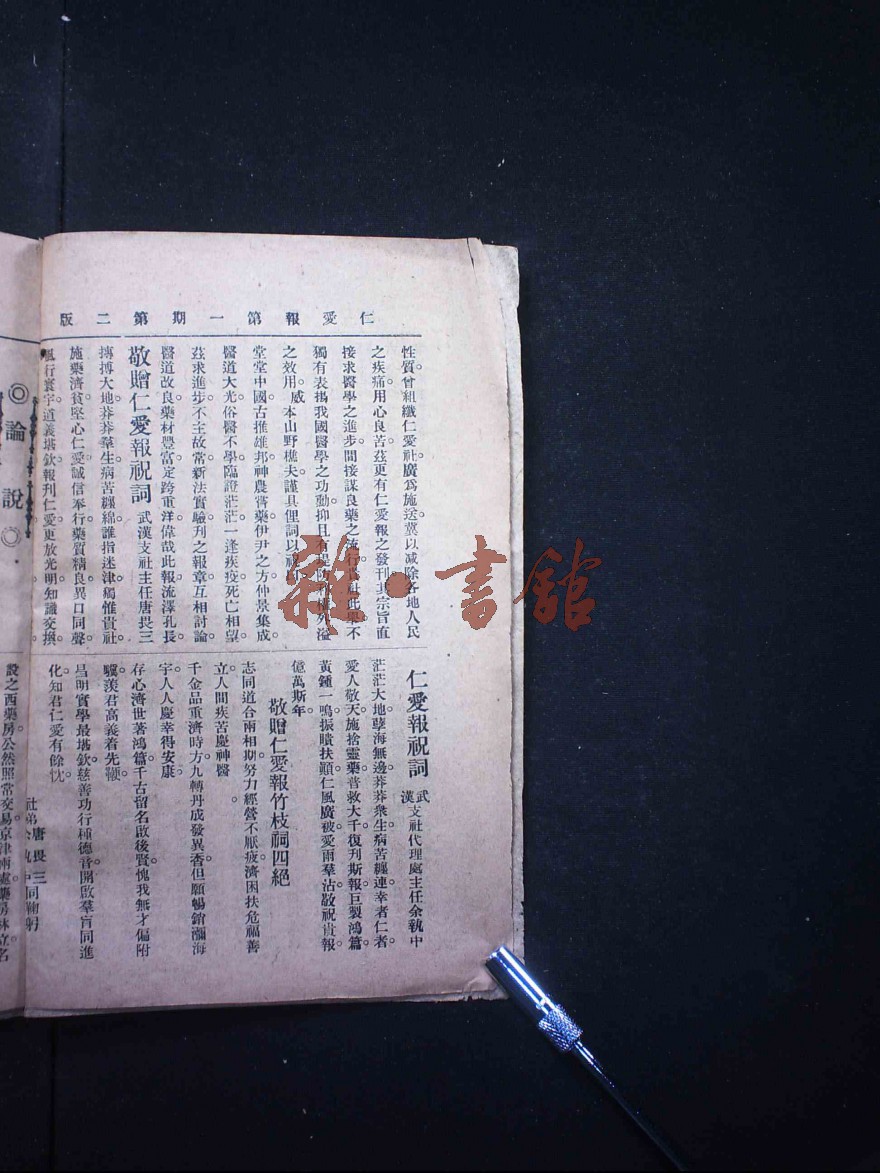 仁愛報第一期第二版
性質曾組織仁愛社廣爲施送冀以减除各地人民
之疾痛用心良苦茲更有仁愛報之發刊其宗旨直
接求醫學之進步間接謀良藥之流行
社此舉不
獨有表揚我國醫學之功勳抑且有
溢
之效用。威本山野樵夫謹具俚詞以祝
堂堂中國古推雄邦神農嘗藥伊尹之方仲景集成。
醫道大光俗醫不學臨證茫茫一逢疾疫死亡相望
茲求進步不主故常新法實驗刊之報章互相討論。
醫道改良藥材豐富定跨重洋偉哉此報流澤孔長
敬贈仁愛報祝詞 武漢支社主任唐畏三
摶摶大地莽莽羣生病苦纏綿誰指迷津獨惟貴社
施藥濟貧堅心仁愛誠信奉行藥質精良異口同聲
風行寰宇道義堪欽報刊仁愛更放光明知識交換
仁愛報祝詞 武漢支社代理處主任余執中
茫茫大地孽海無邊莽莽衆生病苦纏連幸者仁者
愛人敬天施捨靈藥普救大千復刋斯報巨製鴻篇。
黃鍾一鳴振瞶扶顚仁風廣被愛雨羣沾敬祝貴報
億萬斯年。
敬贈仁愛報竹枝祠四絕
志同道合兩相期努力經營不厭疲濟困扶危福善
立人間疾苦慶神醫。
千金品重濟時方九轉丹成發異香但願暢銷瀛海
宇人人慶幸得安康
存心濟世著鴻篇千古留名啟後賢愧我無才偏附
驥羨君高義着先鞭。
昌明實學最堪欽慈善功行種德音開啟羣盲同進
化知君仁愛有餘忱。
社弟 唐畏三 余執中 同鞠躬
◎論說◎
設之西藥房公然照常交易京津兩處藥房林立名